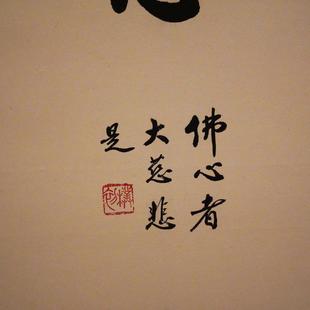 佛心者
大慈悲
是